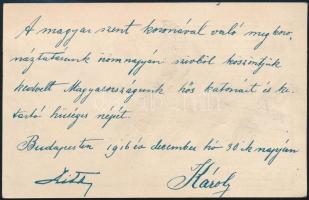 A magyar szent koronával való megkoro-
náztatásunk örömnapján szivből köszöntjük
kedvelt Magyarországunk hős katonáit és ki-
tartó hűséges népét.
Budapesten 1916 évi december hó 30-ik napján
Zita Károly